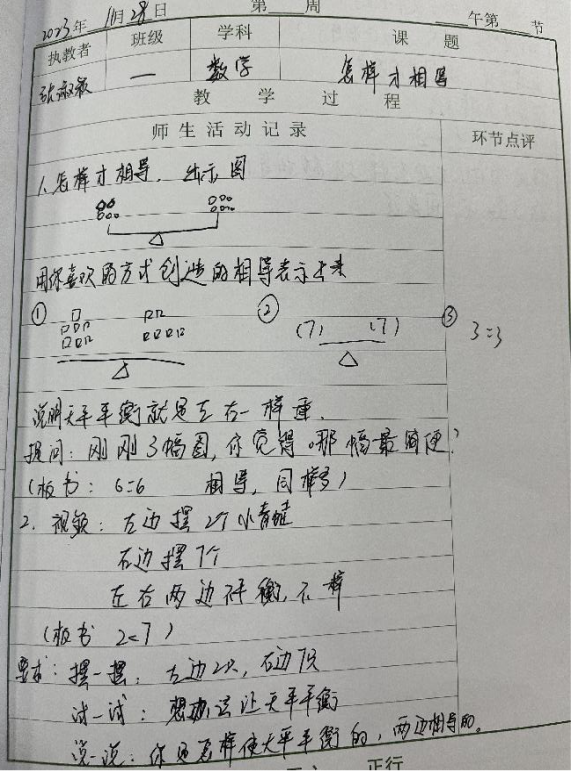 2023年 11月28日 第 周 午第 节
执教者 班级 学科 课 题
一 数学 怎样才相等
教 学 过 程
师生活动记录 环节点评
1、怎样才相等. 出示图
用你喜欢的方式创造的相等表示出来
① ② (7) (7) ③ 3=3
说明天平平衡就是左右一样重.
提问：刚刚3幅图,你觉得哪幅最简便?
(板书: 6=6 相等, 同样多)
2. 视频: 左边摆 2个小青蛙
右边摆7个
左右两边 不
(板书 2<7)
要求: 摆一摆: 左边2只, 右边7只
试一试: 想办法让天平平衡
说一说: 你是怎样使天平平衡的, 两边相等的。
正行